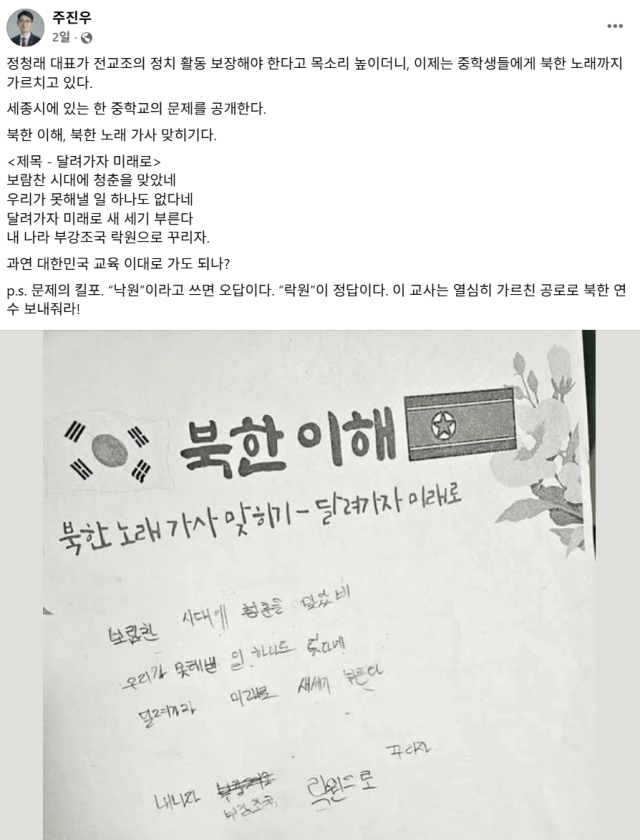 주진우
2일 ·
정청래 대표가 전교조의 정치 활동 보장해야 한다고 목소리 높이더니, 이제는 중학생들에게 북한 노래까지
가르치고 있다.
세종시에 있는 한 중학교의 문제를 공개한다.
북한 이해, 북한 노래 가사 맞히기다.
<제목 - 달려가자 미래로>
보람찬 시대에 청춘을 맞았네
우리가 못해낼 일 하나도 없다네
달려가자 미래로 새 세기 부른다
내 나라 부강조국 락원으로 꾸리자.
과연 대한민국 교육 이대로 가도 되나?
p.s. 문제의 킬포. "낙원"이라고 쓰면 오답이다. "락원"이 정답이다. 이 교사는 열심히 가르친 공로로 북한 연
수 보내줘라!
북한 이해
북한 노래 가사 맞히기 - 달려가자 미래로
보람찬 시대에 청춘을 맞았네
우리가 못해낼 일 하나도 없다네
달려가자 미래로 새세기 부른다
꾸리자
내나라 부강조국 락원으로